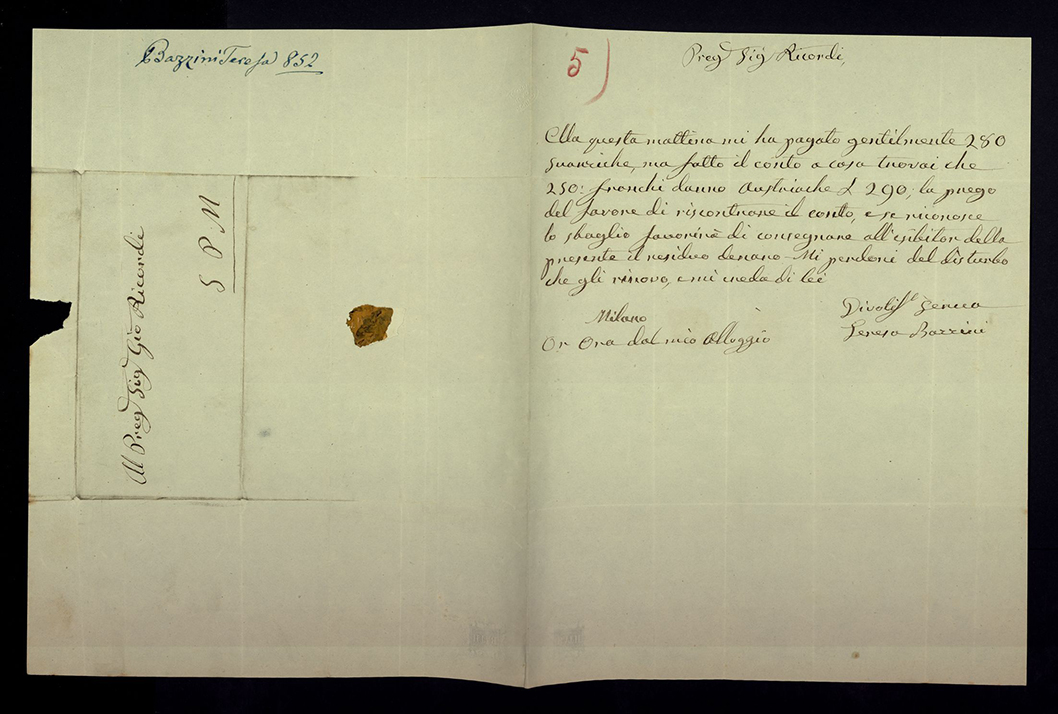 Bazzini Teresa 852
Al Preg Sig Gio Ricordi
S P M
5)
Preg Sig Ricordi,
Ella questa mattina mi ha pagato gentilmente 280
ma fatto il conto a casa trovai che
250: franchi danno Austriache £ 290; la prego
del favore di riscontrare il conto, e se riconosce
lo sbaglio favorirà di consegnare all'esibitor della
presente il residuo denaro - Mi perdoni del disturbo
che gli rinovo, e mi creda di lei
Milano
Or Ora dal mio Alloggio
Divotis.ª Serva
Teresa Bazzini